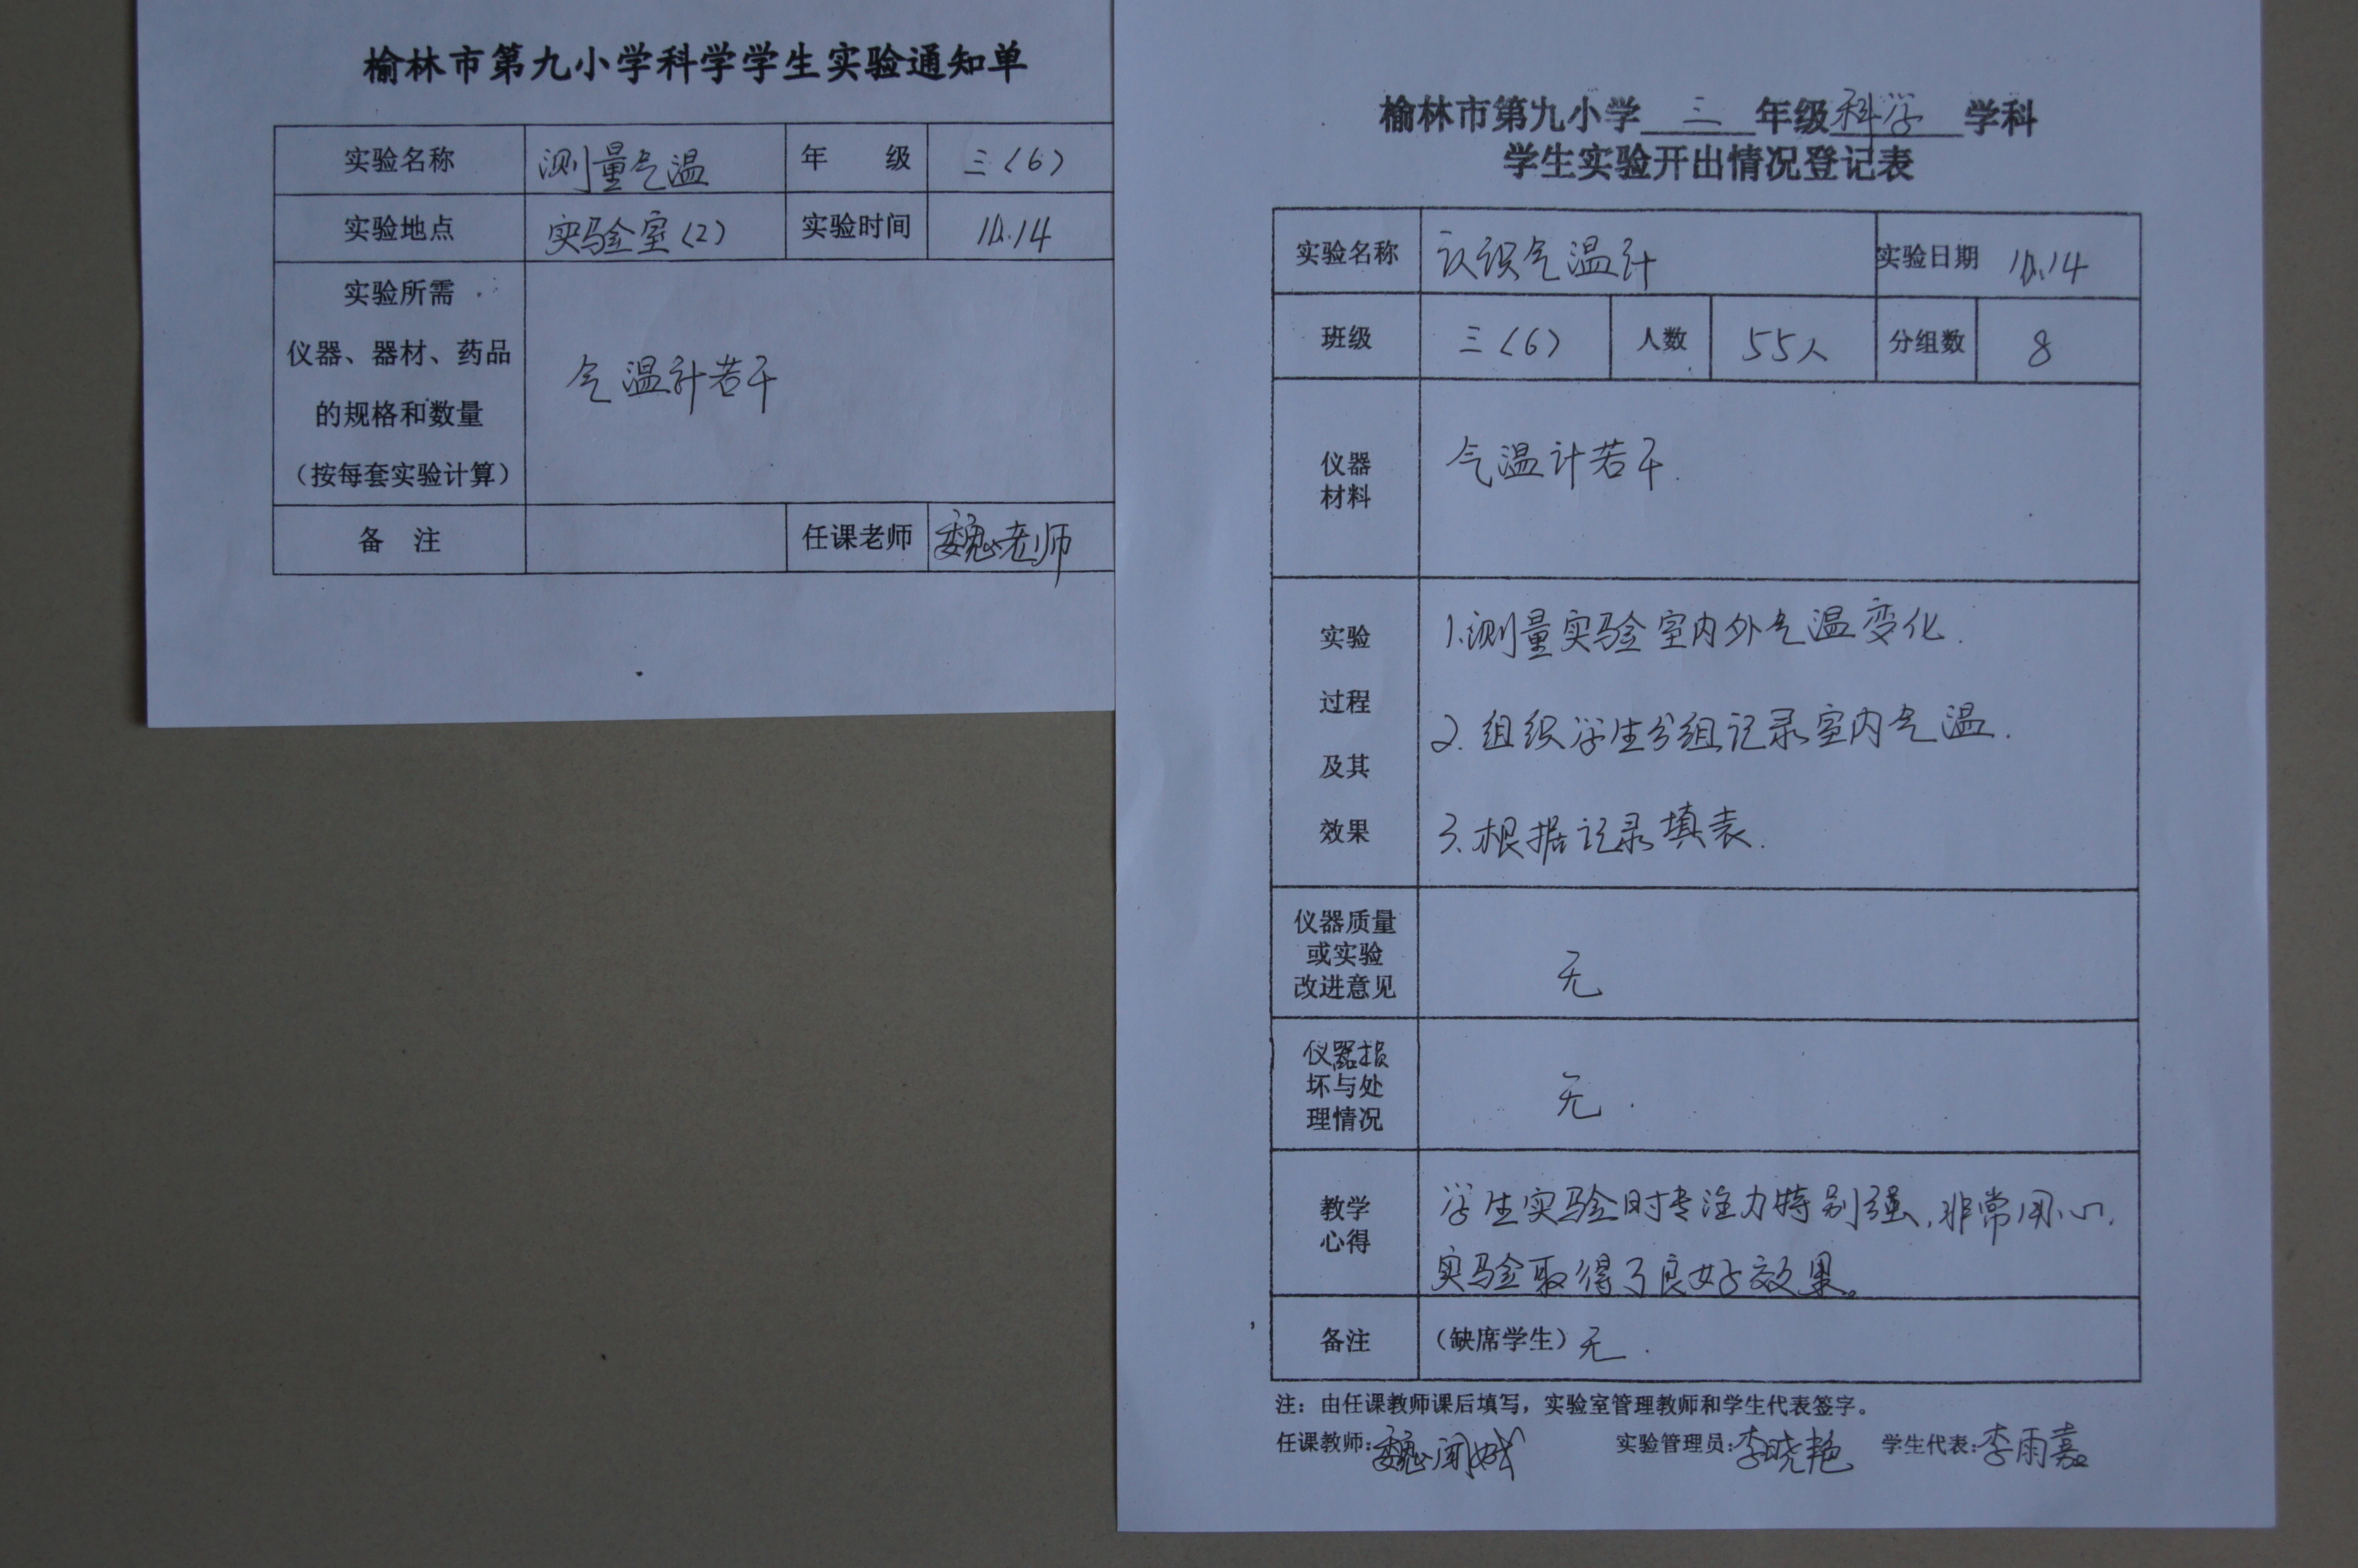 榆林市第九小学科学学生实验通知单
实验名称 测量气温 年 级 三(6)
实验地点 实验室(2) 实验时间 10.14
实验所需
仪器、器材、药品
的规格和数量
(按每套实验计算)
气温计若干
备 注 任课老师 魏老师
榆林市第九小学 三 年级 科学 学科
学生实验开出情况登记表
实验名称 认识气温计 实验日期 10.14
班级 三(6) 人数 55人 分组数 8
仪器
材料
气温计若干.
实验
过程
及其
效果
1.测量实验室内外气温变化.
2.组织学生分组记录室内气温.
3.根据记录填表.
仪器质量
或实验
改进意见
无
仪器损
坏与处
理情况
无.
教学
心得
学生实验时专注力特别强,非常用心,
实验取得了良好效果。
备注 (缺席学生)无.
注:由任课教师课后填写,实验室管理教师和学生代表签字。
任课教师:魏 实验管理员:李晓艳 学生代表:李雨嘉